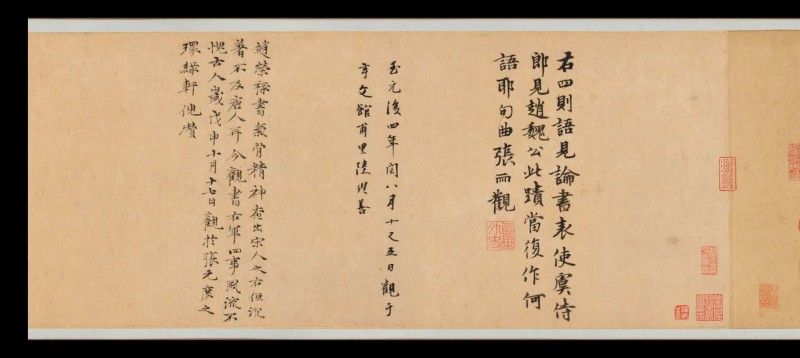 右四則語見論書表使虞侍
郎見趙魏公此蹟當復作何
語耶句曲張雨觀
至元後四年閏八月十又五日觀于
玄文館甫里陸継善
趙榮祿書氣骨精神出宋人之右但沉
著不及唐人耳今觀書右軍四事風流不
愧古人歲戊申十月十七日觀於張元度之
環綠軒倪瓚